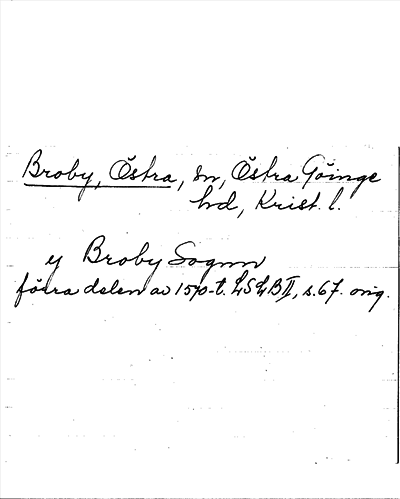 Broby, Östra, sn, Östra Göinge
hd, Krist. l.
ej Broby Sognn
förra delen av 1570-t. LSLB II, s. 67. orig.